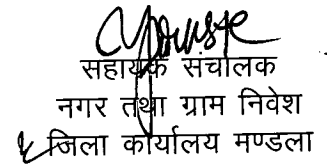 सहायक संचालक
नगर तथा ग्राम निवेश
जिला कार्यालय मण्डला